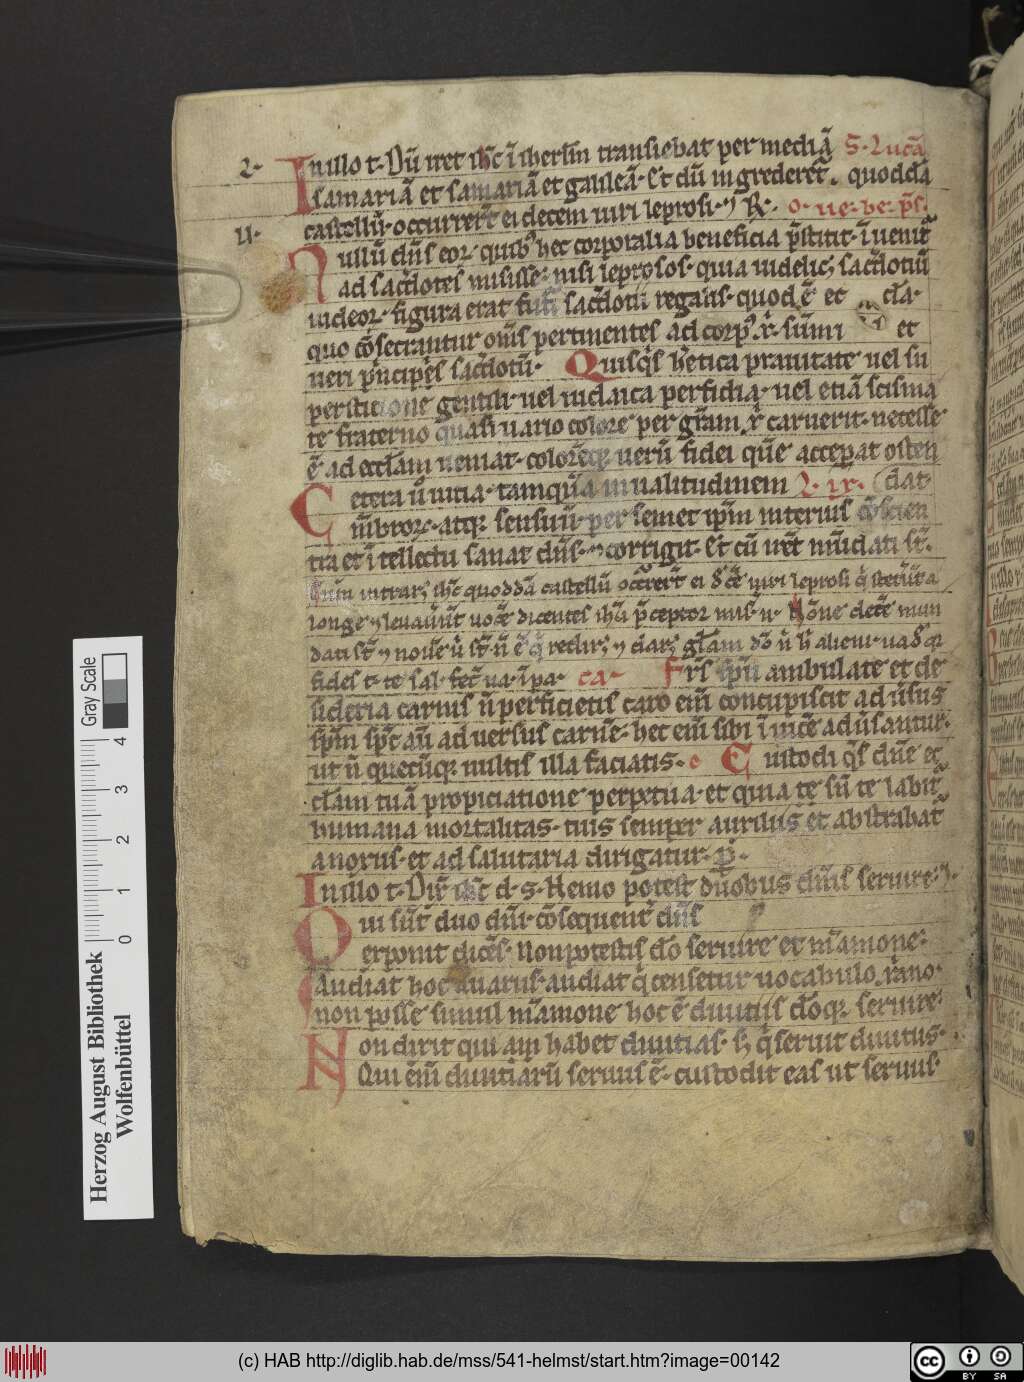 2· In illo t· Dū iret ihc̄ ī iherlm̄ transiebat per mediā S· Lucā
samariā et samariā et galileā· Et dū ingrederet̄· quoddā
castellū· occurrert̄ ei decem uiri leprosi· ⁊ R· o· ue· be· ps̄·
u· Nullū dn̄s eor· quib hec corporalia beneficia p̄stitit· īuenit̄
ad sac̄dotes misisse· nisi leprosos· quia uidelic; sac̄dotiū
iudeor· figura erat futi sac̄dotii regalis· quod ē et
quo cōsecrantur om̄s pertinentes ad corp xp̄i· sūmi et
ueri p̄ncipes sac̄dotū· Quisqs h̄etica prauitate uel su
perstitione gentili· uel iudaica perfidia· uel etiā scisma
te fraterno quasi uario colore per gr̄am xp̄i caruerit· necesse
ē ad eccl̄am ueniat· colorēq; uerū fidei quē acceperat osten
Cetera ū uitia· tamquā in ualitudinem L· ix· dat·
mbror· atq; sensuū· per semet ipm̄ interius cōscien
tia et ītellectu sanat dn̄s· ⁊ corrigit· Et cū iret̄ mūdati st̄·
Cum intrar; ihc̄ quoddā castellū occrert̄ ei decē uiri leprosi q̄ stetert̄ a
longe ⁊ leuauūt uocē dicentes ihū p̄ceptor mis̄· n̄· Nōne decē mun
dati st̄ ⁊ nouē ū st̄ n̄ ē q̄ redir; ⁊ dar; gl̄am dō n̄ h̄ alieni· uade q
fides t· te sal· fec̄ ua· ī pa· ca· Fr̄s spū ambulate et de
sideria carnis n̄ perficietis caro em̄ concupiscit aduersus
spm̄ spc̄ aū aduersus carnē· hec em̄ sibi īuicē aduersantur·
ut n̄ quecūq; uultis illa faciatis· o Custodi qs dn̄e ec
cl̄am tuā propiciatione perpetua· et quia te sn̄ te labit̄
humana mortalitas· tuis semper auxiliis et abstrahat̄
a noxiis· et ad salutaria dirigatur· p·
In illo t· Dix̄ ihc̄ d· s· Nemo potest duobus dn̄is seruire·
Qui sūt duo dn̄i· cōsequent̄ dn̄s
exponit dicēs· Non potestis dō seruire et māmone·
Audiat hoc auarus· audiat q̄ censetur uocabulo xp̄iano·
non posse simul māmone hoc ē diuitiis dōq; seruire·
Non dixit qui aut habet diuitias· s; q̄ seruit diuitiis·
Qui em̄ diuitiarū seruus ē· custodit eas ut seruus·
Gray Scale
0 1 2 3 4
Herzog August Bibliothek
Wolfenbüttel
(c) HAB http://diglib.hab.de/mss/541-helmst/start.htm?image=00142
cc BY SA